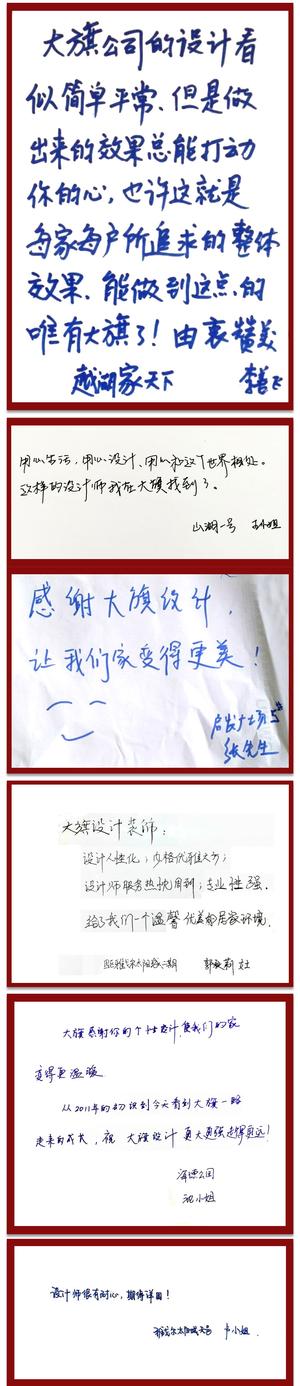 大旗公司的设计看
似简单平常、但是做
出来的效果总能打动
你的心，也许这就是
每家每户所追求的整体
效果、能做到这点、的
唯有大旗了！由衷赞美
越湖家天下 李善飞
用心生活，用心设计、用心和这个世界相处。
这样的设计师我在大旗找到了。
山湖一号 王小姐
感谢大旗设计，
让我们家变得更美！
张先生
大旗设计装饰：
设计人性化；
设计师服务热忱周到；专业性强。
给了我们一个温馨优美的居家环境.
女士
大旗感谢你的个性设计,使我们的家
变得更温暖
从2011年的初识到今天看到大旗一路
走来的成长，祝 大旗设计 更大更强走得更远！
海德公园
沈小姐
设计师很有耐心，期待详图！
小姐.